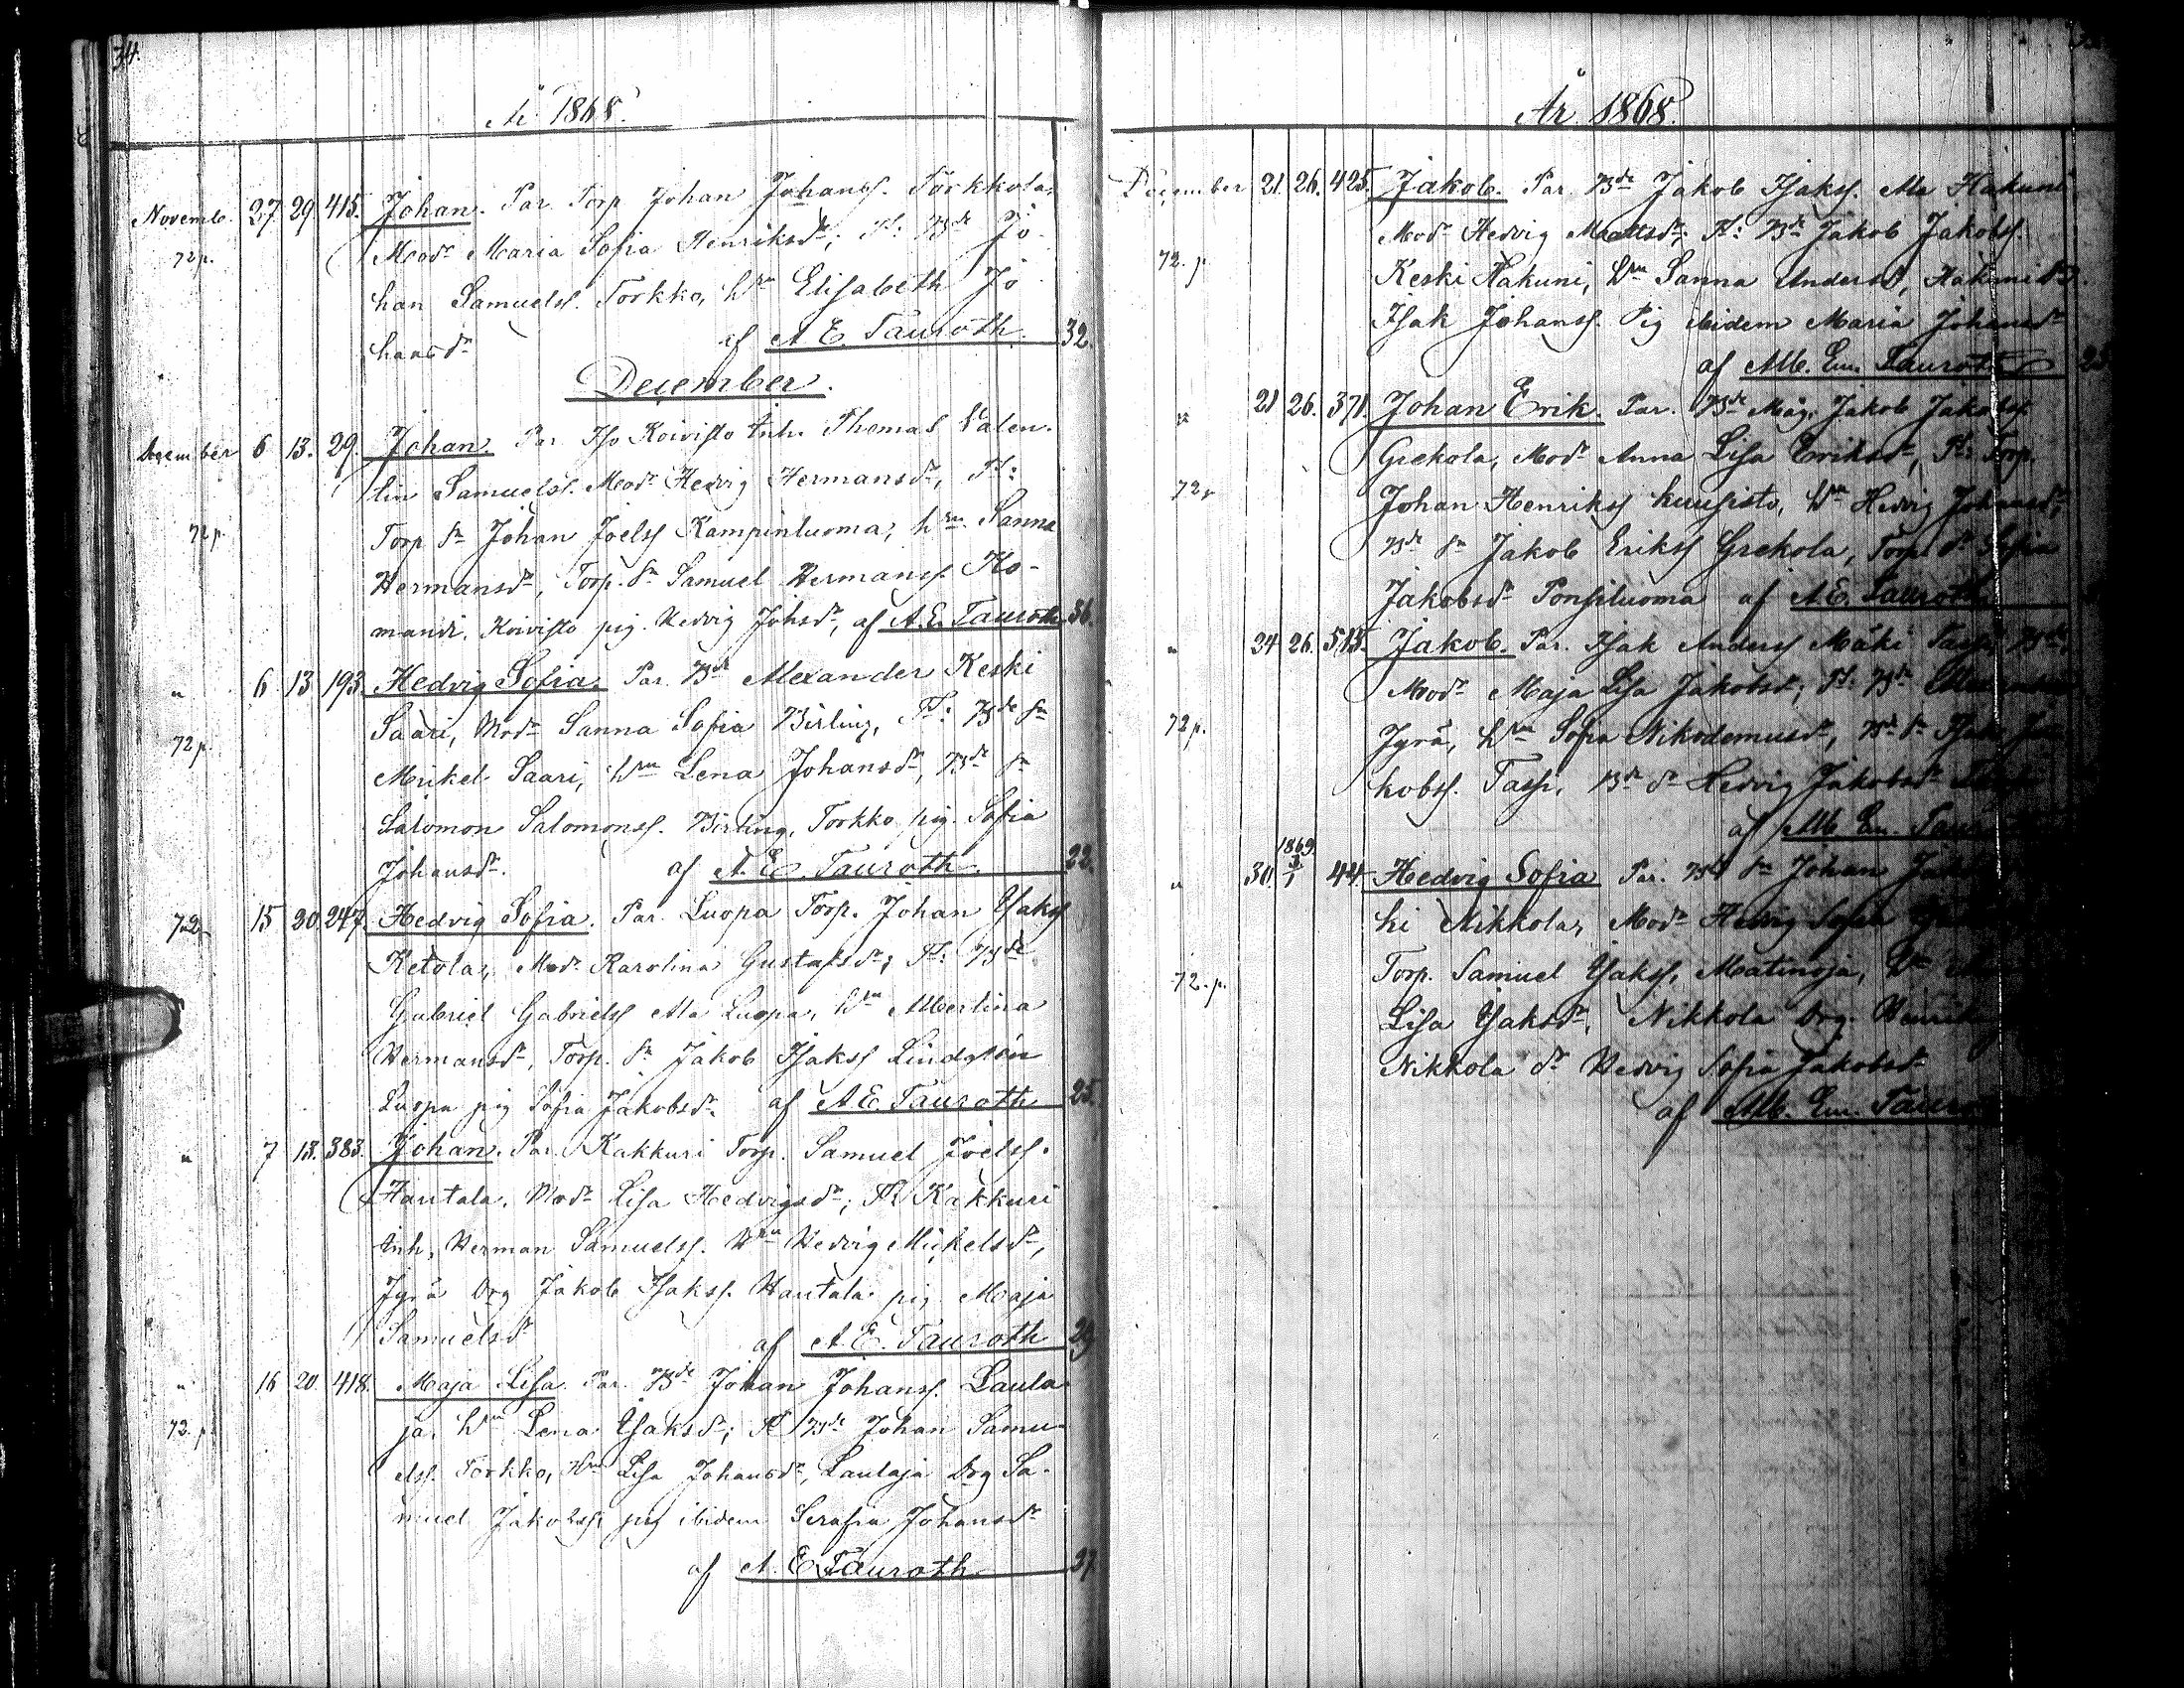 34.
År 1868.
Novemb. 27 29 415. Johan. Par. Torp Johan Johanss. Torkkola,
72 p. Modr Maria Sofia Henriksdr; Ft: Bde Jo-
han Samuelss. Torkko, hru Elisabeth Jo
hansdr af A E. Tauroth. 32.
December.
December 6 13. 29. Johan. Par. Iso Koivisto Inh. Thomas Valen-
tin Samuelss. Modr Hedvig Hermansdr, Ft:
72 p. Torp Sn Johan Joelss Kampinluoma, hru Sanna
Hermansdr, Torp. Sn Samuel Hermanss. Ko-
mandi, Koivisto pig. Hedvig Johsdr, af A. E. Tauroth 36.
" 6 13 193 Hedvig Sofia. Par. Bde Alexander Keski
Saari, Modr Sanna Sofia Birling, Ft: Bde Sn
72 p. Mikel Saari, hru Lena Johansdr, Bde Sn
Salomon Salomonss. Birling, Torkko pig. Sofia
Johansdr. af A. E. Tauroth. 22.
72 p 15 20 247. Hedvig Sofia. Par. Luopa Torp. Johan Isakss
Ketola, Modr Karolina Gustafsdr; Ft: Bde
Gabriel Gabrielss Ala Luopa, hru Albertina
Hermansdr, Torp. Sn Jakob Isakss Lindgrén
Luopa pig Sofia Jakobsdr. af A E. Tauroth 25
" 7 13. 383. Johan. Par. Kakkuri Torp. Samuel Joelss.
Hautala, Modr Lisa Hedvigsdr; Ft Kakkuri
Inh. Herman Samuelss. Hru Hedvig Mickelsdr,
Jyrä Drg Jakob Isakss. Hautala pig Maja
Samuelsdr af A. E. Tauroth 29
" 16 20. 418. Maja Lisa. Par. Bde Johan Johanss. Laula
72. p ja, hru Lena Isaksdr; Ft Bde Johan Samu-
elss. Torkko, Hru Lisa Johansdr, Laulaja Drg Sa-
muel Jakobss, pig ibidem Serafia Johansdr
af A. E Tauroth 27
År 1868.
December 21. 26. 425. Jakob. Par. Bde Jakob Isakss. Ala Hakuni
Modr Hedvig Mattsdr; Ft: Bde Jakob Jakobss.
72. p. Keski Hakuni, hru Sanna Andersdr, Hakuni
Isak Johanss. Pig ibidem Maria Johansdr
af Alb. Em. Tauroth
" 21 26. 371. Johan Erik. Par. Bde Måg. Jakob Jakobss
Grekola, Modr Anna Lisa Eriksdr, Ft: Torp.
72 p Johan Henrikss Kuusisto, hru Hedvig Johansdr,
Bde Sn Jakob Erikss Grekola, Torp. dr Sofia
Jakobsdr Ponsiluoma af A E. Tauroth
" 24 26. 513. Jakob. Par. Isak Anderss Mäki Passi
Modr Maja Lisa Jakobsdr; Ft: Bde
72 p. Jyrä, hru Sofia Nikodemusdr, Bde Sn Isak Ja
kobss. Tassi, Bde dr Hedvig Jakobsdr
af Alb Em. Tau
" 30. 1869 3/1 44. Hedvig Sofia Par. Bde Sn Johan
ki Nikkola, Modr Hedvig Sofia
72. p. Torp. Samuel Isakss, Matinoja,
Lisa Isaksdr, Nikkola Drg. Henrik
Nikkola dr Hedvig Sofia Jakobsdr
af Alb. Em. Tauro